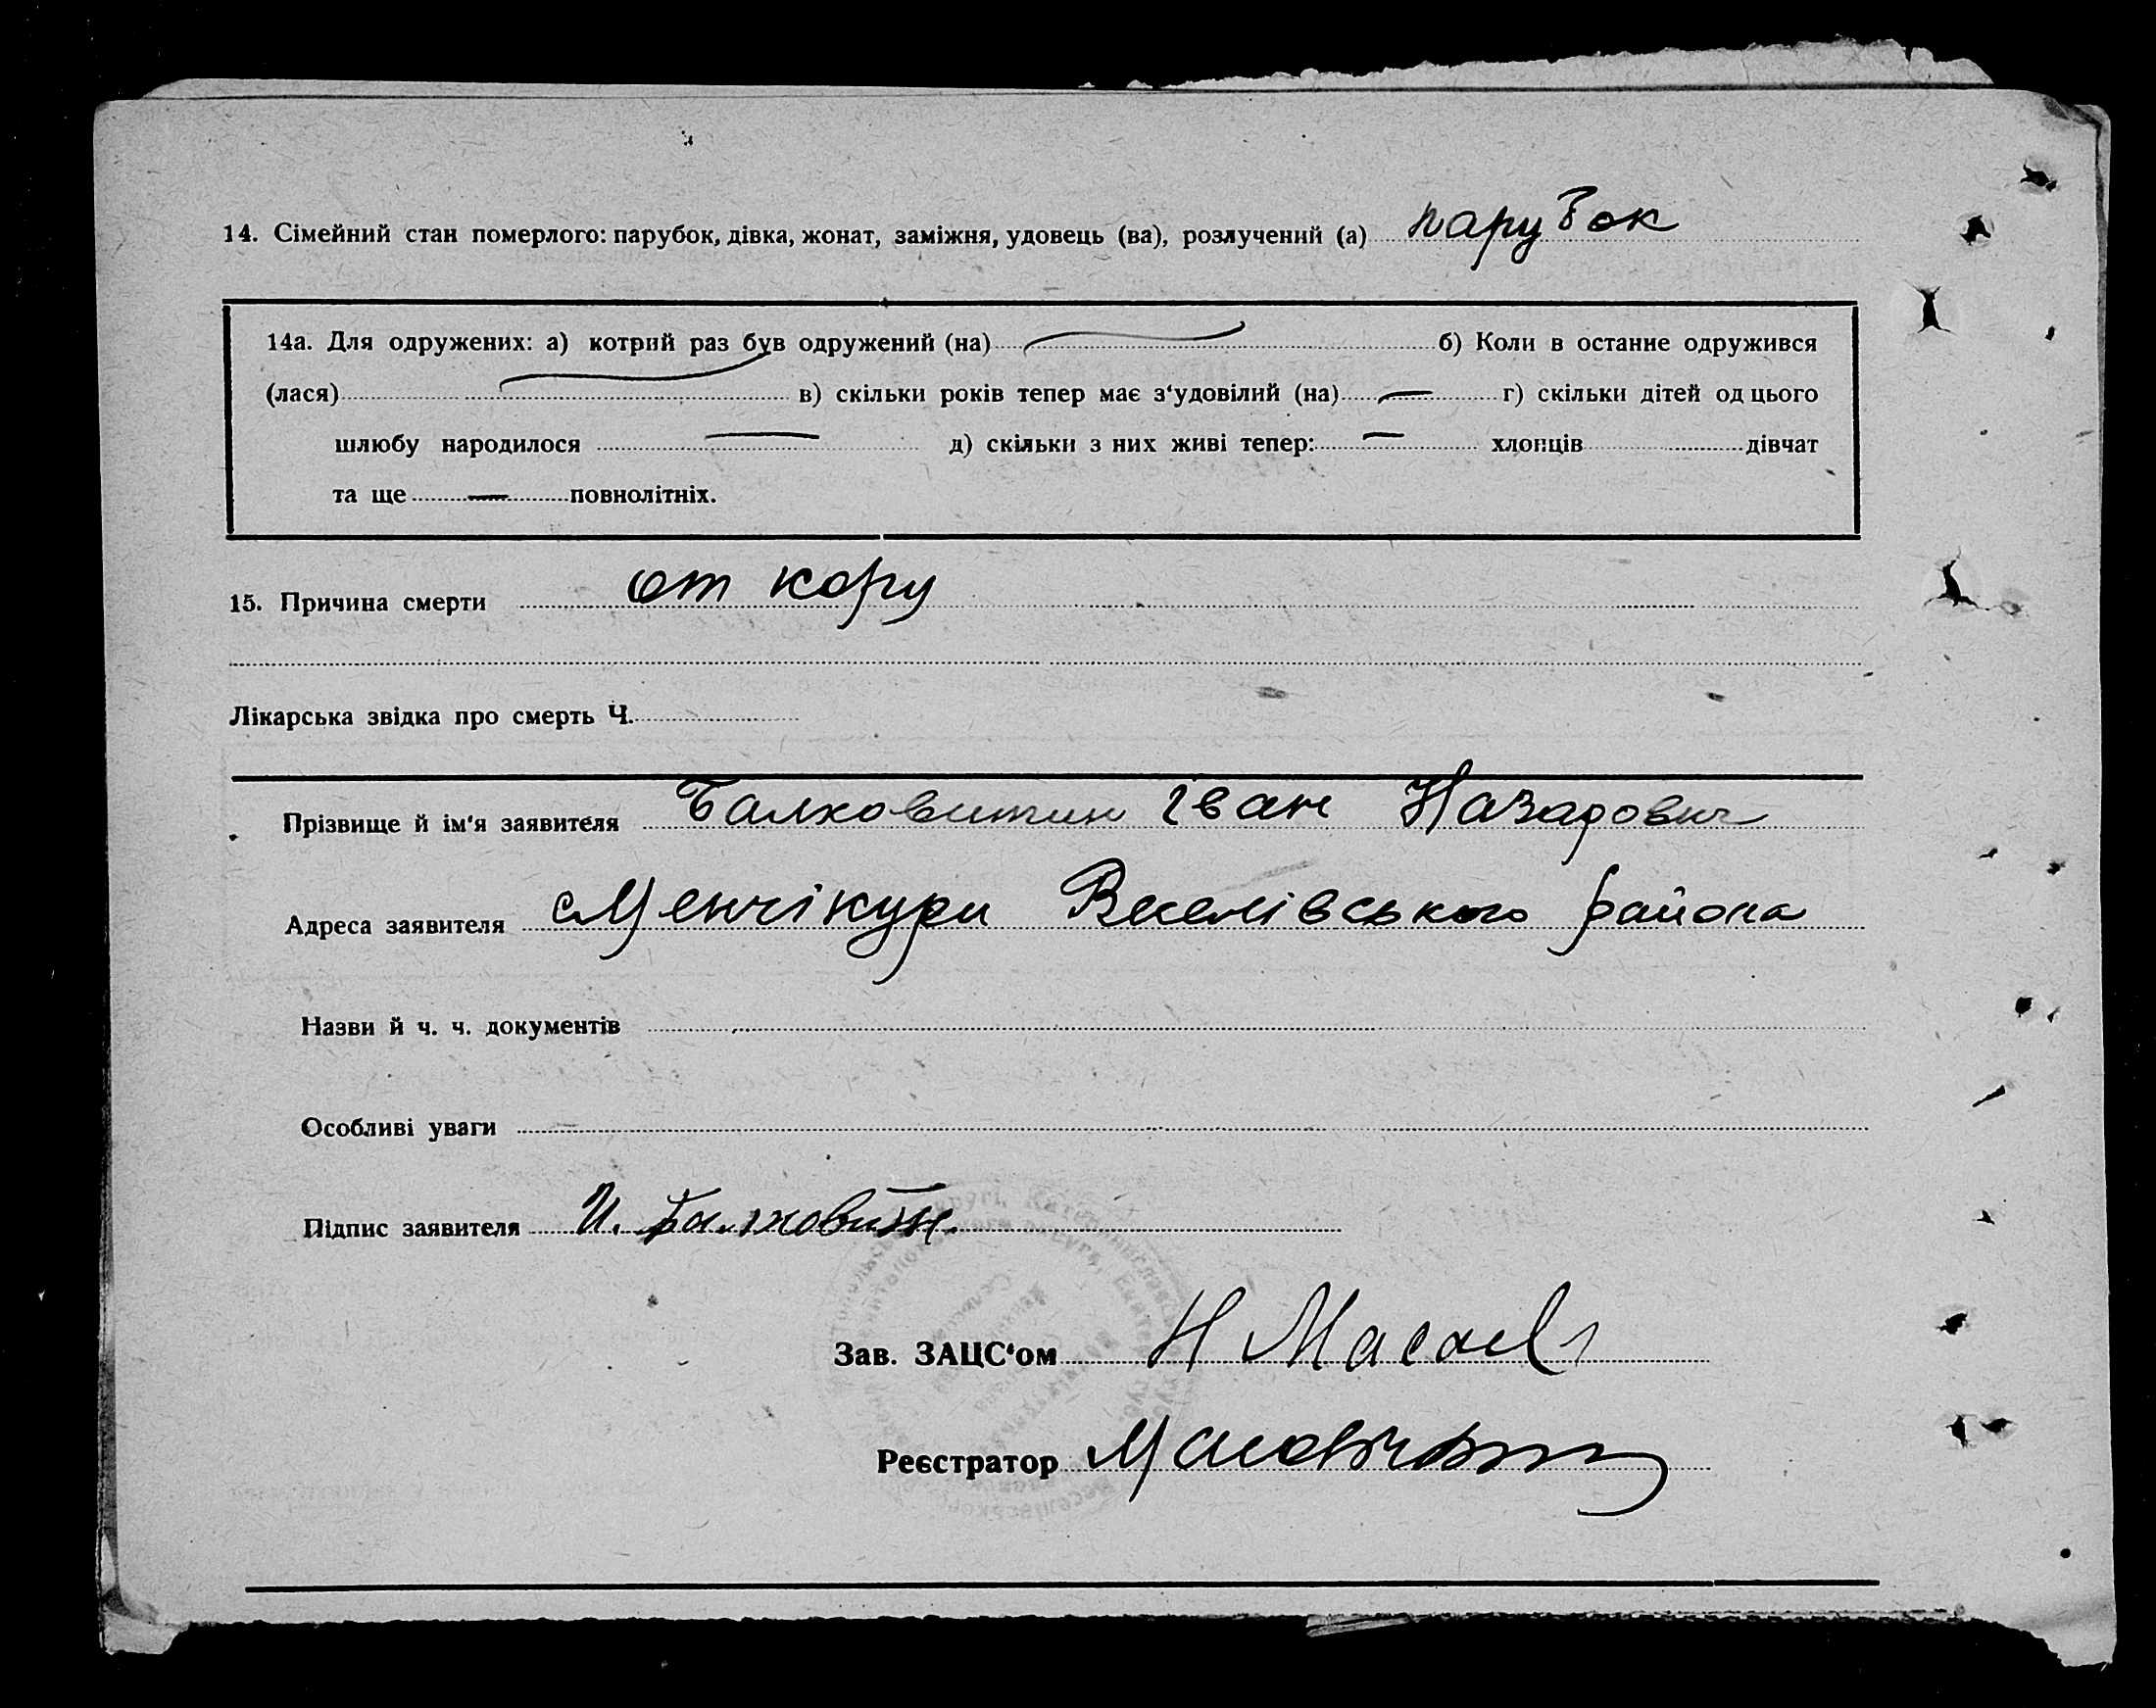 14. Сімейний стан померлого: парубок, дівка, жонат, заміжня, удовець (ва), розлучений (а) парубок
14а. Для одружених: а) котрий раз був одружений (на) б) Коли в останнє одружився
(лася) в) скільки років тепер має з‘удовілий (на) г) скільки дітей од цього
шлюбу народилося д) скільки з них живі тепер: хлопців дівчат
та ще повнолітніх.
15. Причина смерти от кору
Лікарська звідка про смерть Ч.
Прізвище й ім‘я заявителя Іван Назарович
Адреса заявителя с Менчікури Веселівського района
Назви й ч. ч. документів
Особливі уваги
Підпис заявителя И.
Зав. ЗАЦС‘ом Н
Реєстратор